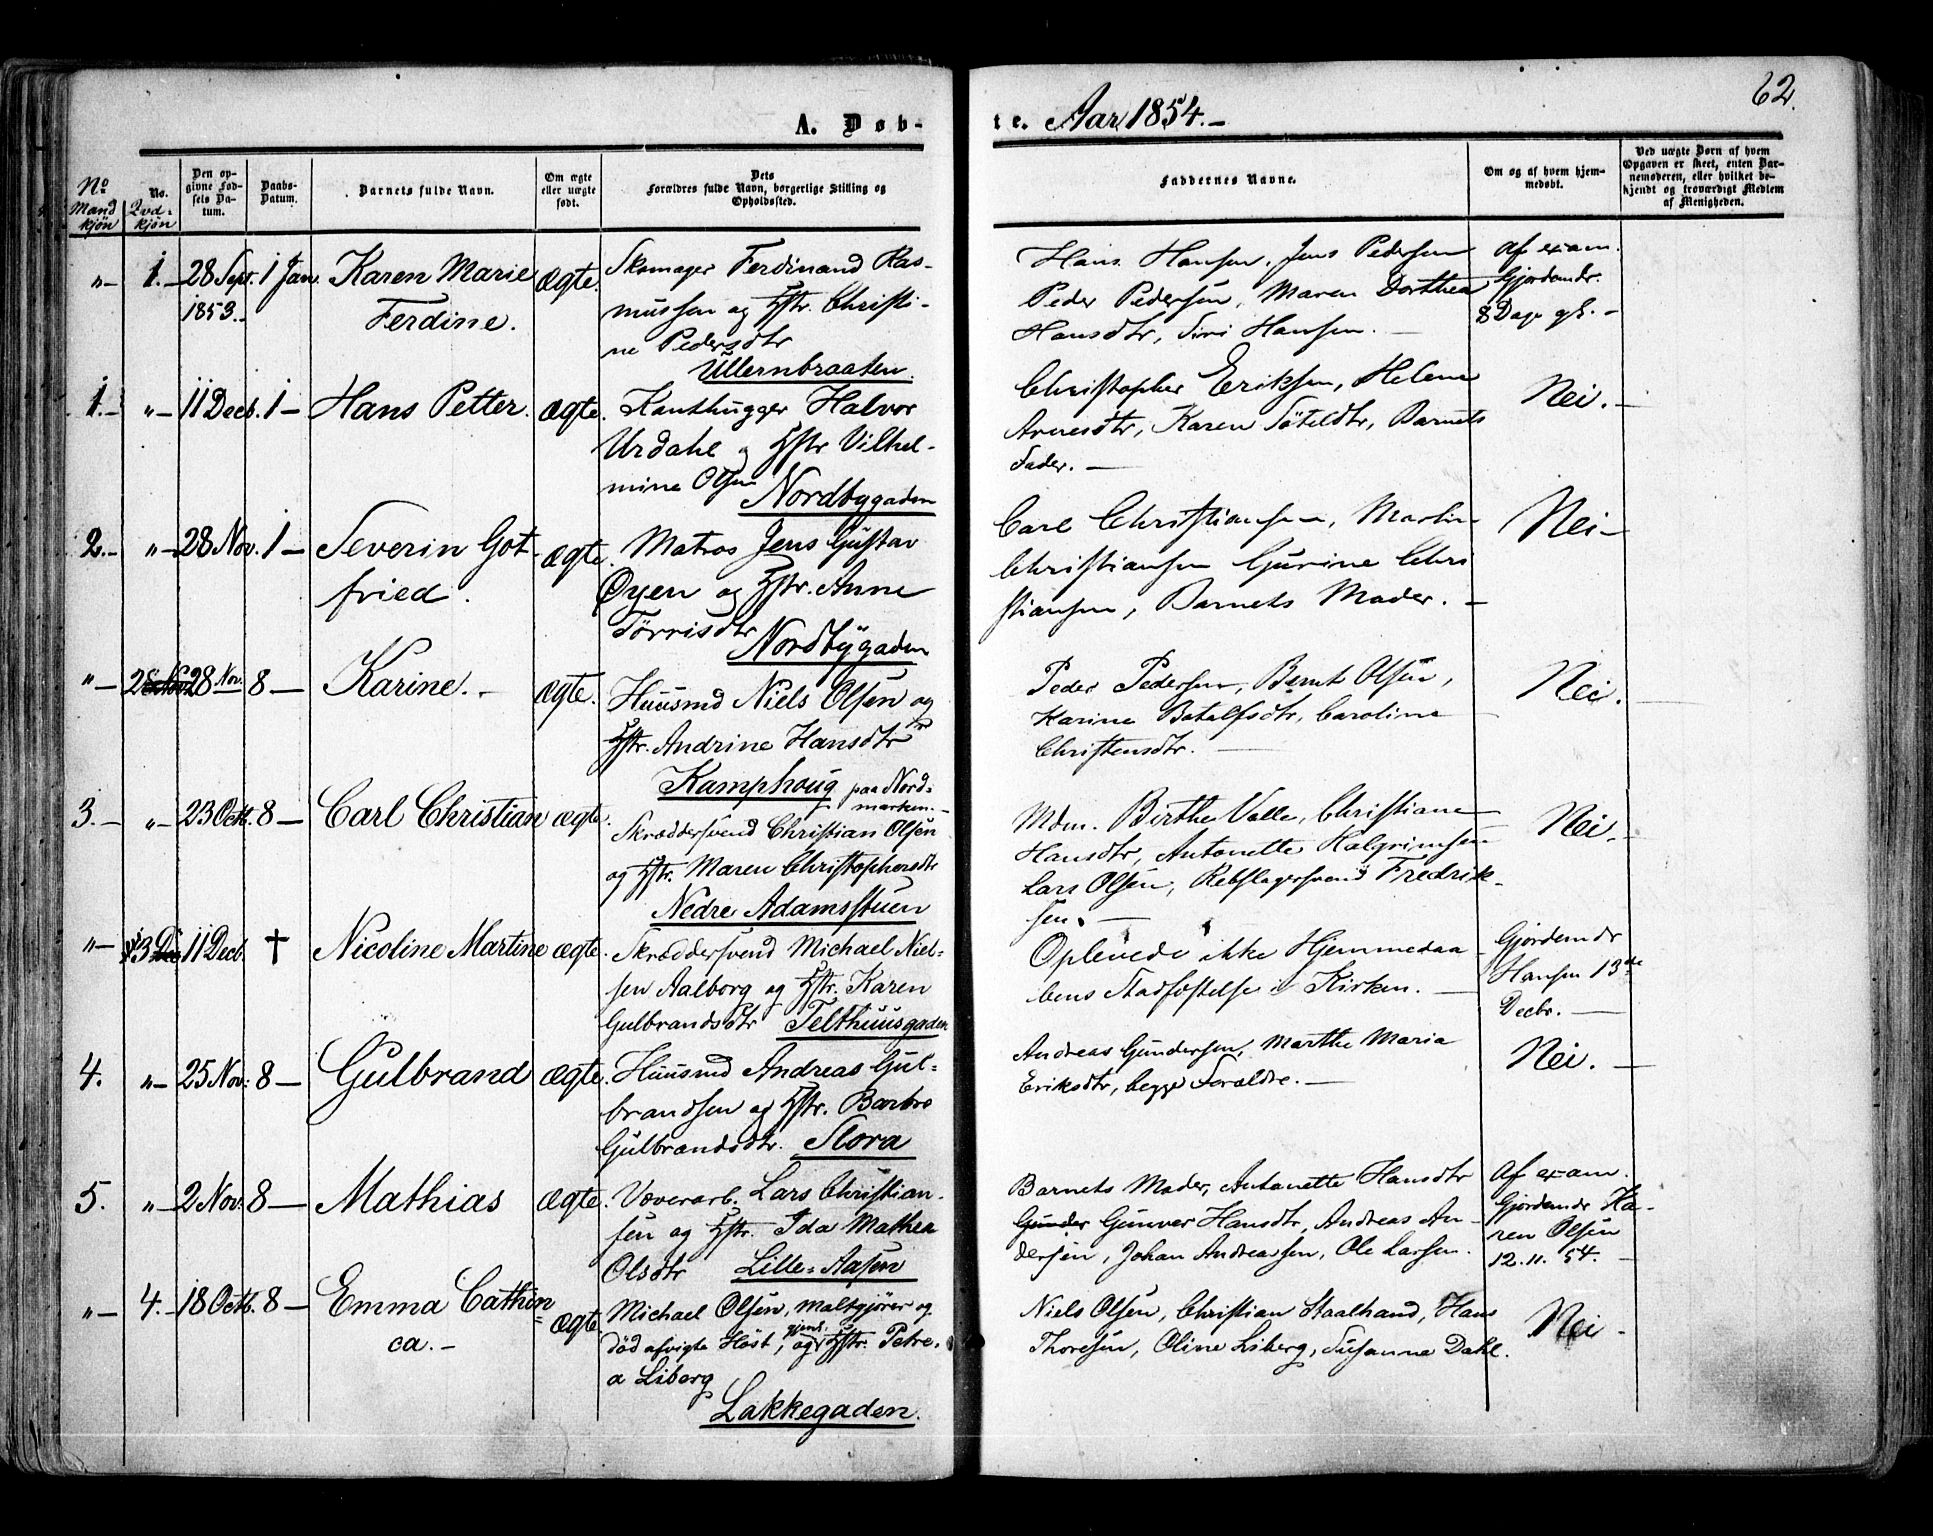 62.
A. Døb-
te. Aar 1854.-
No Mandkjøn
No. Qvdkjøn
Den opgivne Fødsels Datum.
Daabs-Datum.
Barnets fulde Navn.
Om ægte eller uægte født.
Dets Forældres fulde Navn, borgerlige Stilling og Opholdssted.
Faddernes Navne.
Om og af hvem hjemmedøbt.
Ved uægte Børn af hvem Opgaven er skeet, enten Barnemoderen, eller hvilket bekjendt og troværdigt Medlem af Menigheden.
"- 1.- 28 Sept. 1 Jan. Karen Marie ægte. Skomager Ferdinand Ras-
1853.- Ferdine. mussen og Hstr. Christi-
ne Pedersdtr
Ullernbraaten.
Hans Hansen, Jens Pedersen
Peder Pedersen, Maren Dorthea
Hansdtr, Siri Hansen. -
af exam.
Gjordemdr.
8 Dage gl. -
1.- "- 11 Decb. 1- Hans Petter. ægte. Kanthugger Halvor
Urdahl og Hstr Vilhel-
mine Olsen Nordbygaden
Christopher Eriksen, Helene
Arnesdtr, Karen Søteldtr, Barnets
Fader. -
Nei. -
2.- "- 28 Nov. 1- Severin Got- ægte. Matros Jens Gustav
fried. Øyen og Hstr. Anne
Tørrisdtr Nordbygaden
Carl Christiansen, Martin
Christiansen Gurine Chri
stiansen, Barnets Moder. -
Nei -
"- 2 28 Nov. 8- Karine. - ægte. Huusmd Niels Olsen og
Hstr. Andrine Hansdtr
Kamphoug paa Nord-
marken. -
Peder Pedersen, Bernt Olsen,
Karine Batalfsdtr, Caroline
Christensdtr. -
Nei. -
3.- "- 23 Octb. 8- Carl Christian ægte. Skræddersvend Christian Olsen
og Hstr. Maren Christophersdtr
Nedre Adamsstuen
Mdm. Birthe Valle, Christiane
Hansdtr, Antonette Halgrimsen
Lars Olsen, Rebslagersvend Fredrik-
sen. -
Nei. -
"- 3 11 Decb. † Nicoline Martine ægte. Skræddersvend Michael Niel-
sen Aalborg og Hstr. Karen
Gulbrandsdtr Telthuusgaden
Oplevede ikke Hjemmedaa
bens Stadfæstelse i Kirken. -
Gjordemdr
Hansen 13de
Decbr. -
4. "- 25 Nov: 8- Gulbrand ægte. Huusmd Andreas Gul-
brandsen og Hstr. Barbro
Gulbrandsdtr. Slora
Andreas Gundersen, Marthe Maria
Eriksdtr, begge Forældre. -
Nei. -
5. "- 2 Nov: 8- Mathias ægte. Væverarb. Lars Christian-
sen og Hstr. Ida Mathea
Olsdtr Lille-Aasen
Barnets Moder, Antonette Hansdtr
Gunder Gunver Hansdtr, Andreas An-
dersen, Johan Andreassen, Ole Larsen.
af exam.
Gjordemdr Ka-
ren Olsen
12.11.54. -
"- 4.- 18 Octb. 8- Emma Cathin- ægte. Michael Olsen, Maltgjører og
ca. - død afvigte Høst, og gjenl. Hstr. Petre-
a Liberg
Lakkegaden.
Niels Olsen, Christian Staalhand, Hans
Thoresen, Oline Liberg, Susanna Dahl.
Nei -